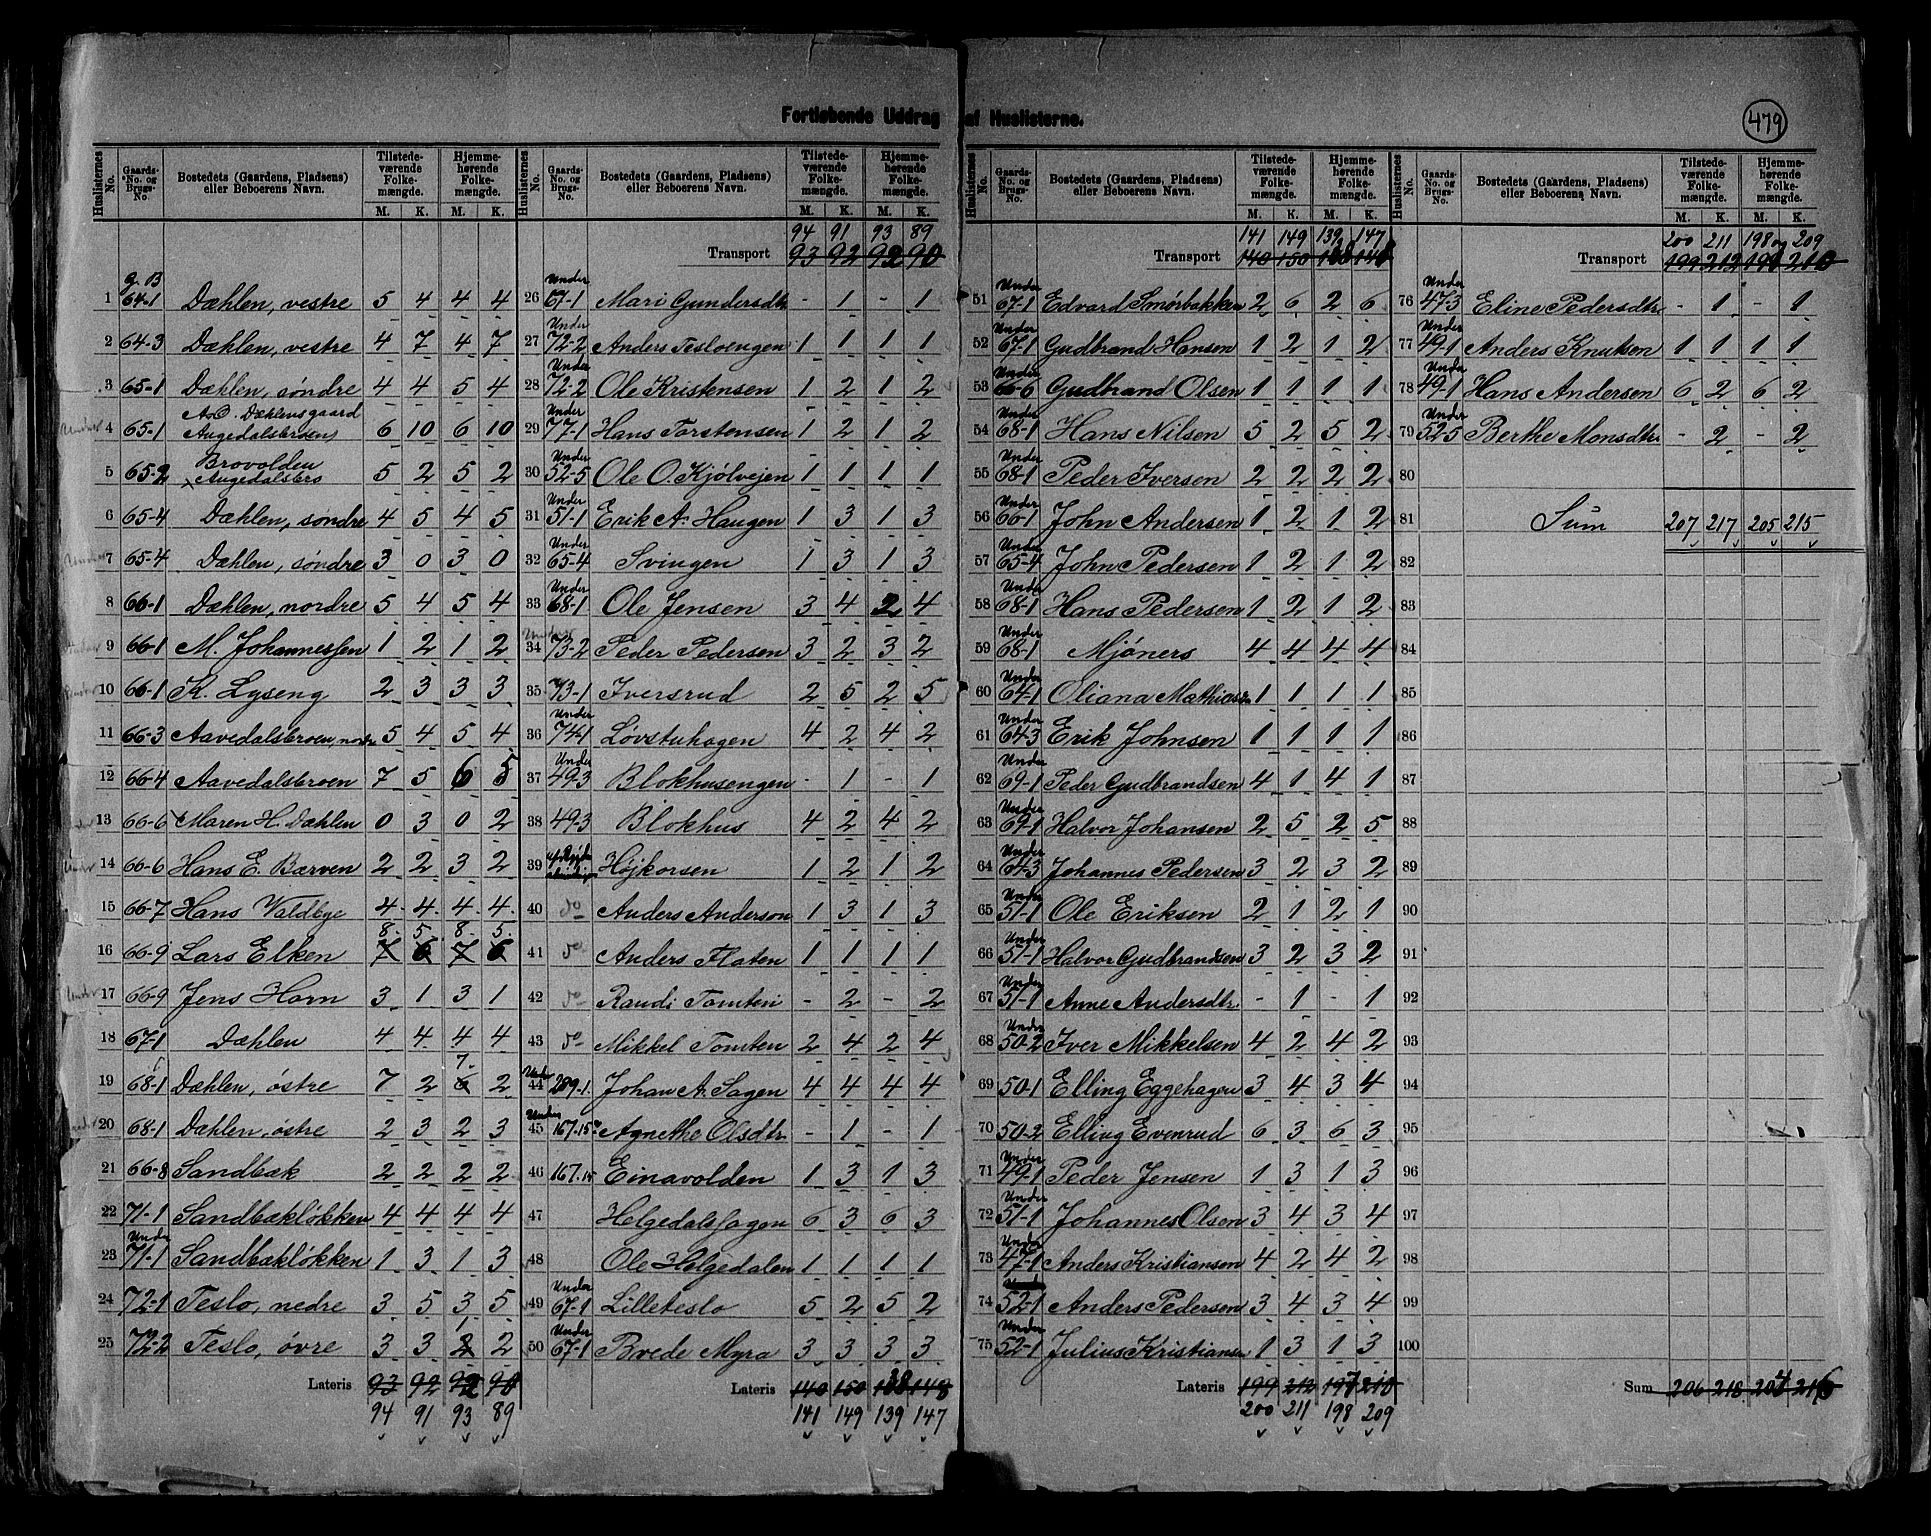 Fortløbende Uddrag af Huslisterne.
479
Huslisternes No. Gaards-No. og Brugs-No. Bostedets (Gaardens, Pladsens) eller Beboerens Navn. Tilstedeværende Folkemængde. M. K. Hjemmehørende Folkemængde. M. K.
G. B
1 64-1 Dæhlen, vestre 5 4 4 4
2 64-3 Dæhlen, vestre 4 7 4 7
3 65-1 Dæhlen, søndre 4 4 5 4
4 65-1 Augedalsbroen 6 10 6 10
5 65-2 Brovolden Augedalsbro 5 2 5 2
6 65-4 Dæhlen, søndre 4 5 4 5
7 65-4 Dæhlen, søndre 3 0 3 0
8 66-1 Dæhlen, nordre 5 4 5 4
9 66-1 M. Johannessen 1 2 1 2
10 66-1 K. Lyseng 2 3 3 3
11 66-3 Aavedalsbroen, nordre 5 4 5 4
12 66-4 Aavedalsbroen 7 5 6 5
13 66-6 Maren H. Dæhlen 0 3 0 2
14 66-6 Hans E. Barven 2 2 3 2
15 66-7 Hans Valdbye 4 4 4 4
16 66-9 Lars Elken 8 5 8 5
17 66-9 Jens Horn 3 1 3 1
18 67-1 Dæhlen 4 4 4 4
19 68-1 Dæhlen, østre 7 2 7 2
20 68-1 Dæhlen, østre 2 3 2 3
21 66-8 Sandbæk 2 2 2 2
22 71-1 Sandbækløkken 4 4 4 4
23 Under 71-1 Sandbækløkken 1 3 1 3
24 72-1 Teslo, nedre 3 5 3 5
25 72-2 Teslo, øvre 3 3 1 2
Lateris 93 92 92 90
94 91 93 89
Huslisternes No. Gaards-No. og Brugs-No. Bostedets (Gaardens, Pladsens) eller Beboerens Navn. Tilstedeværende Folkemængde. M. K. Hjemmehørende Folkemængde. M. K.
94 91 93 89
Transport 93 92 92 90
26 Under 67-1 Mari Gundersdtr - 1 - 1
27 Under 72-2 Anders Tesloengen 1 1 1 1
28 Under 72-2 Ole Kristensen 1 2 1 2
29 Under 77-1 Hans Torstensen 1 2 1 2
30 Under 52-5 Ole O. Kjølvejen 1 1 1 1
31 Under 51-1 Erik A. Haugen 1 3 1 3
32 Under 65-4 Svingen 1 3 1 3
33 Under 68-1 Ole Jensen 3 4 2 4
34 Under 73-2 Peder Pedersen 3 2 3 2
35 73-1 Iversrud 2 5 2 5
36 Under 74-1 Løvstuhagen 4 2 4 2
37 Under 49-3 Blokhusengen - 1 - 1
38 49-3 Blokhus 4 2 4 2
39 Højkorsen 1 2 1 2
40 do Anders Anderson 1 3 1 3
41 do Anders Flaten 1 1 1 1
42 do Randi Tomten - 2 - 2
43 do Mikkel Tomten 2 4 2 4
44 Under 289-1 Johan A. Sagen 4 4 4 4
45 Under 167.15 Agnethe Olsdtr. - 1 - 1
46 167.15 Einavolden 1 3 1 3
47 Helgedalssagen 6 3 6 3
48 Ole Helgedalen 1 1 1 1
49 Under 67-1 Lilleteslo 5 2 5 2
50 Under 67-1 Brede Myra 3 3 3 3
Lateris 140 150 138 148
141 149 139 147
Huslisternes No. Gaards-No. og Brugs-No. Bostedets (Gaardens, Pladsens) eller Beboerens Navn. Tilstedeværende Folkemængde. M. K. Hjemmehørende Folkemængde. M. K.
141 149 139 147
Transport 140 150 148
51 Under 67-1 Edvard Smørbakken 2 6 2 6
52 Under 67-1 Gudbrand Hansen 1 2 1 2
53 Under 66-6 Gudbrand Olsen 1 1 1 1
54 Under 68-1 Hans Nilsen 5 2 5 2
55 Under 68-1 Peder Iversen 2 2 2 2
56 Under 66-1 John Andersen 1 2 1 2
57 Under 65-4 John Pedersen 1 2 1 2
58 Under 68-1 Hans Pedersen 1 2 1 2
59 Under 68-1 Mjøners 4 4 4 4
60 Under 64-1 Oliana Mathiasdr 1 1 1 1
61 Under 64-3 Erik Johnsen 1 1 1 1
62 Under 69-1 Peder Gudbrandsen 4 1 4 1
63 Under 69-1 Halvor Johansen 2 5 2 5
64 Under 64-3 Johannes Pedersen 3 2 3 2
65 Under 51-1 Ole Eriksen 2 1 2 1
66 Under 51-1 Halvor Gudbrandsen 3 2 3 2
67 Under 51-1 Anne Andersdtr. - 1 - 1
68 Under 50-2 Iver Mikkelsen 4 2 4 2
69 50-1 Elling Eggehagen 3 4 3 4
70 50-2 Elling Evenrud 6 3 6 3
71 Under 49-1 Peder Jensen 1 3 1 3
72 Under 51-1 Johannes Olsen 3 4 3 4
73 Under 47-1 Anders Kristiansen 4 2 4 2
74 Under 52-1 Anders Pedersen 3 4 3 4
75 Under 52-1 Julius Kristiansen 1 3 1 3
Lateris 199 212 197 210
200 211 198 209
Huslisternes No. Gaards-No. og Brugs-No. Bostedets (Gaardens, Pladsens) eller Beboerens Navn. Tilstedeværende Folkemængde. M. K. Hjemmehørende Folkemængde. M. K.
200 211 198 og 209
Transport 199 212 210
76 Under 47-3 Eline Pedersdtr. - 1 - 1
77 Under 49-1 Anders Knutsen 1 1 1 1
78 Under 49-1 Hans Andersen 6 2 6 2
79 Under 52-5 Berthe Monsdtr. - 2 - 2
80
81 Sum 207 217 205 215
82
83
84
85
86
87
88
89
90
91
92
93
94
95
96
97
98
99
100
Sum 206 218 204 216